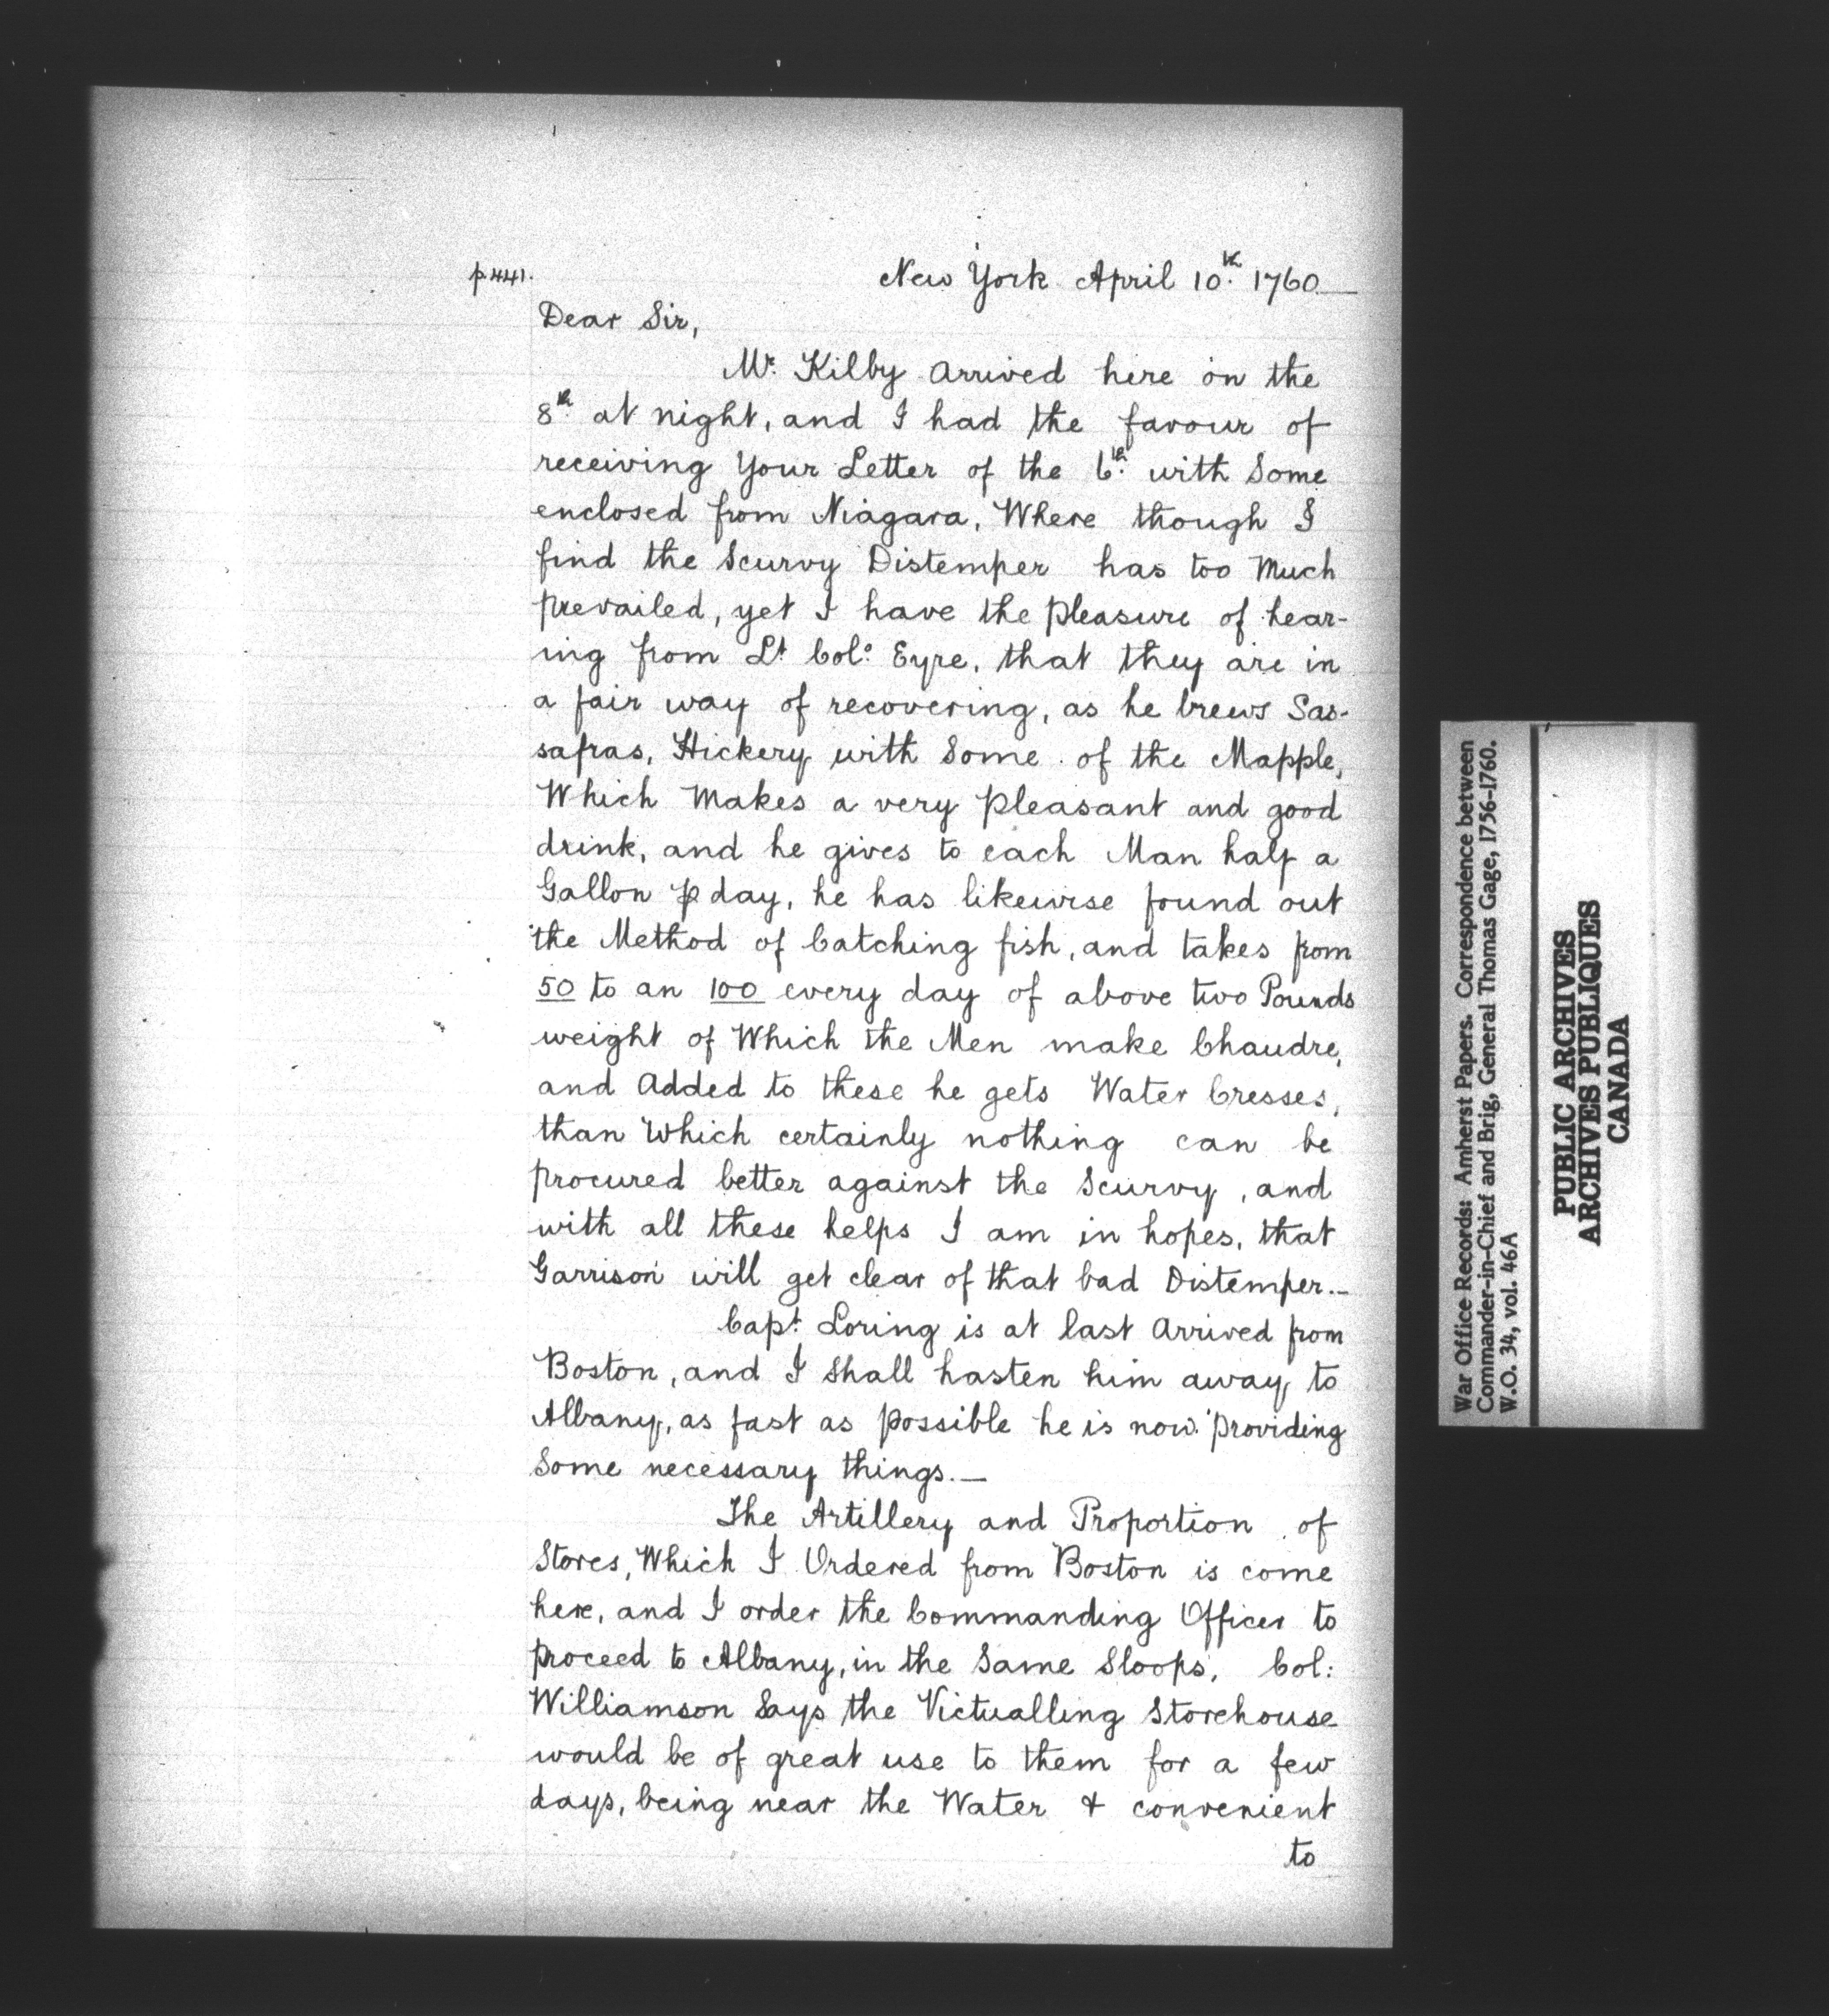 p. 441.
New York April 10th. 1760
Dear Sir,
Mr. Kilby arrived here on the
8th. at night, and I had the favour of
receiving Your Letter of the 6th. with Some
enclosed from Niagara, Where though I
find the Scurvy Distemper has too Much
prevailed, yet I have the pleasure of hear-
ing from Lt. Colo. Eyre, that they are in
a fair way of recovering, as he brews Sas-
safras, Hickery with Some of the Mapple,
Which Makes a very pleasant and good
drink, and he gives to each Man half a
Gallon ⅌ day, he has likewise found out
the Method of Catching fish, and takes from
50 to an 100 every day of above two Pounds
weight of Which the Men make Chaudre,
and Added to these he gets Water Cresses,
than Which certainly nothing can be
procured better against the Scurvy, and
with all these helps I am in hopes, that
Garrison will get clear of that bad Distemper._
Capt. Loring is at last Arrived from
Boston, and I Shall hasten him away to
Albany, as fast as possible he is now providing
Some necessary things._
The Artillery and Proportion of
Stores, Which I Ordered from Boston is come
here, and I order the Commanding Officer to
proceed to Albany, in the Same Sloops, Col:
Williamson Says the Victualling Storehouse
would be of great use to them for a few
days, being near the Water & convenient
to
War Office Records: Amherst Papers. Correspondence between
Commander-in-Chief and Brig, General Thomas Gage, 1756-1760.
W.O. 34, vol. 46A
PUBLIC ARCHIVES
ARCHIVES PUBLIQUES
CANADA